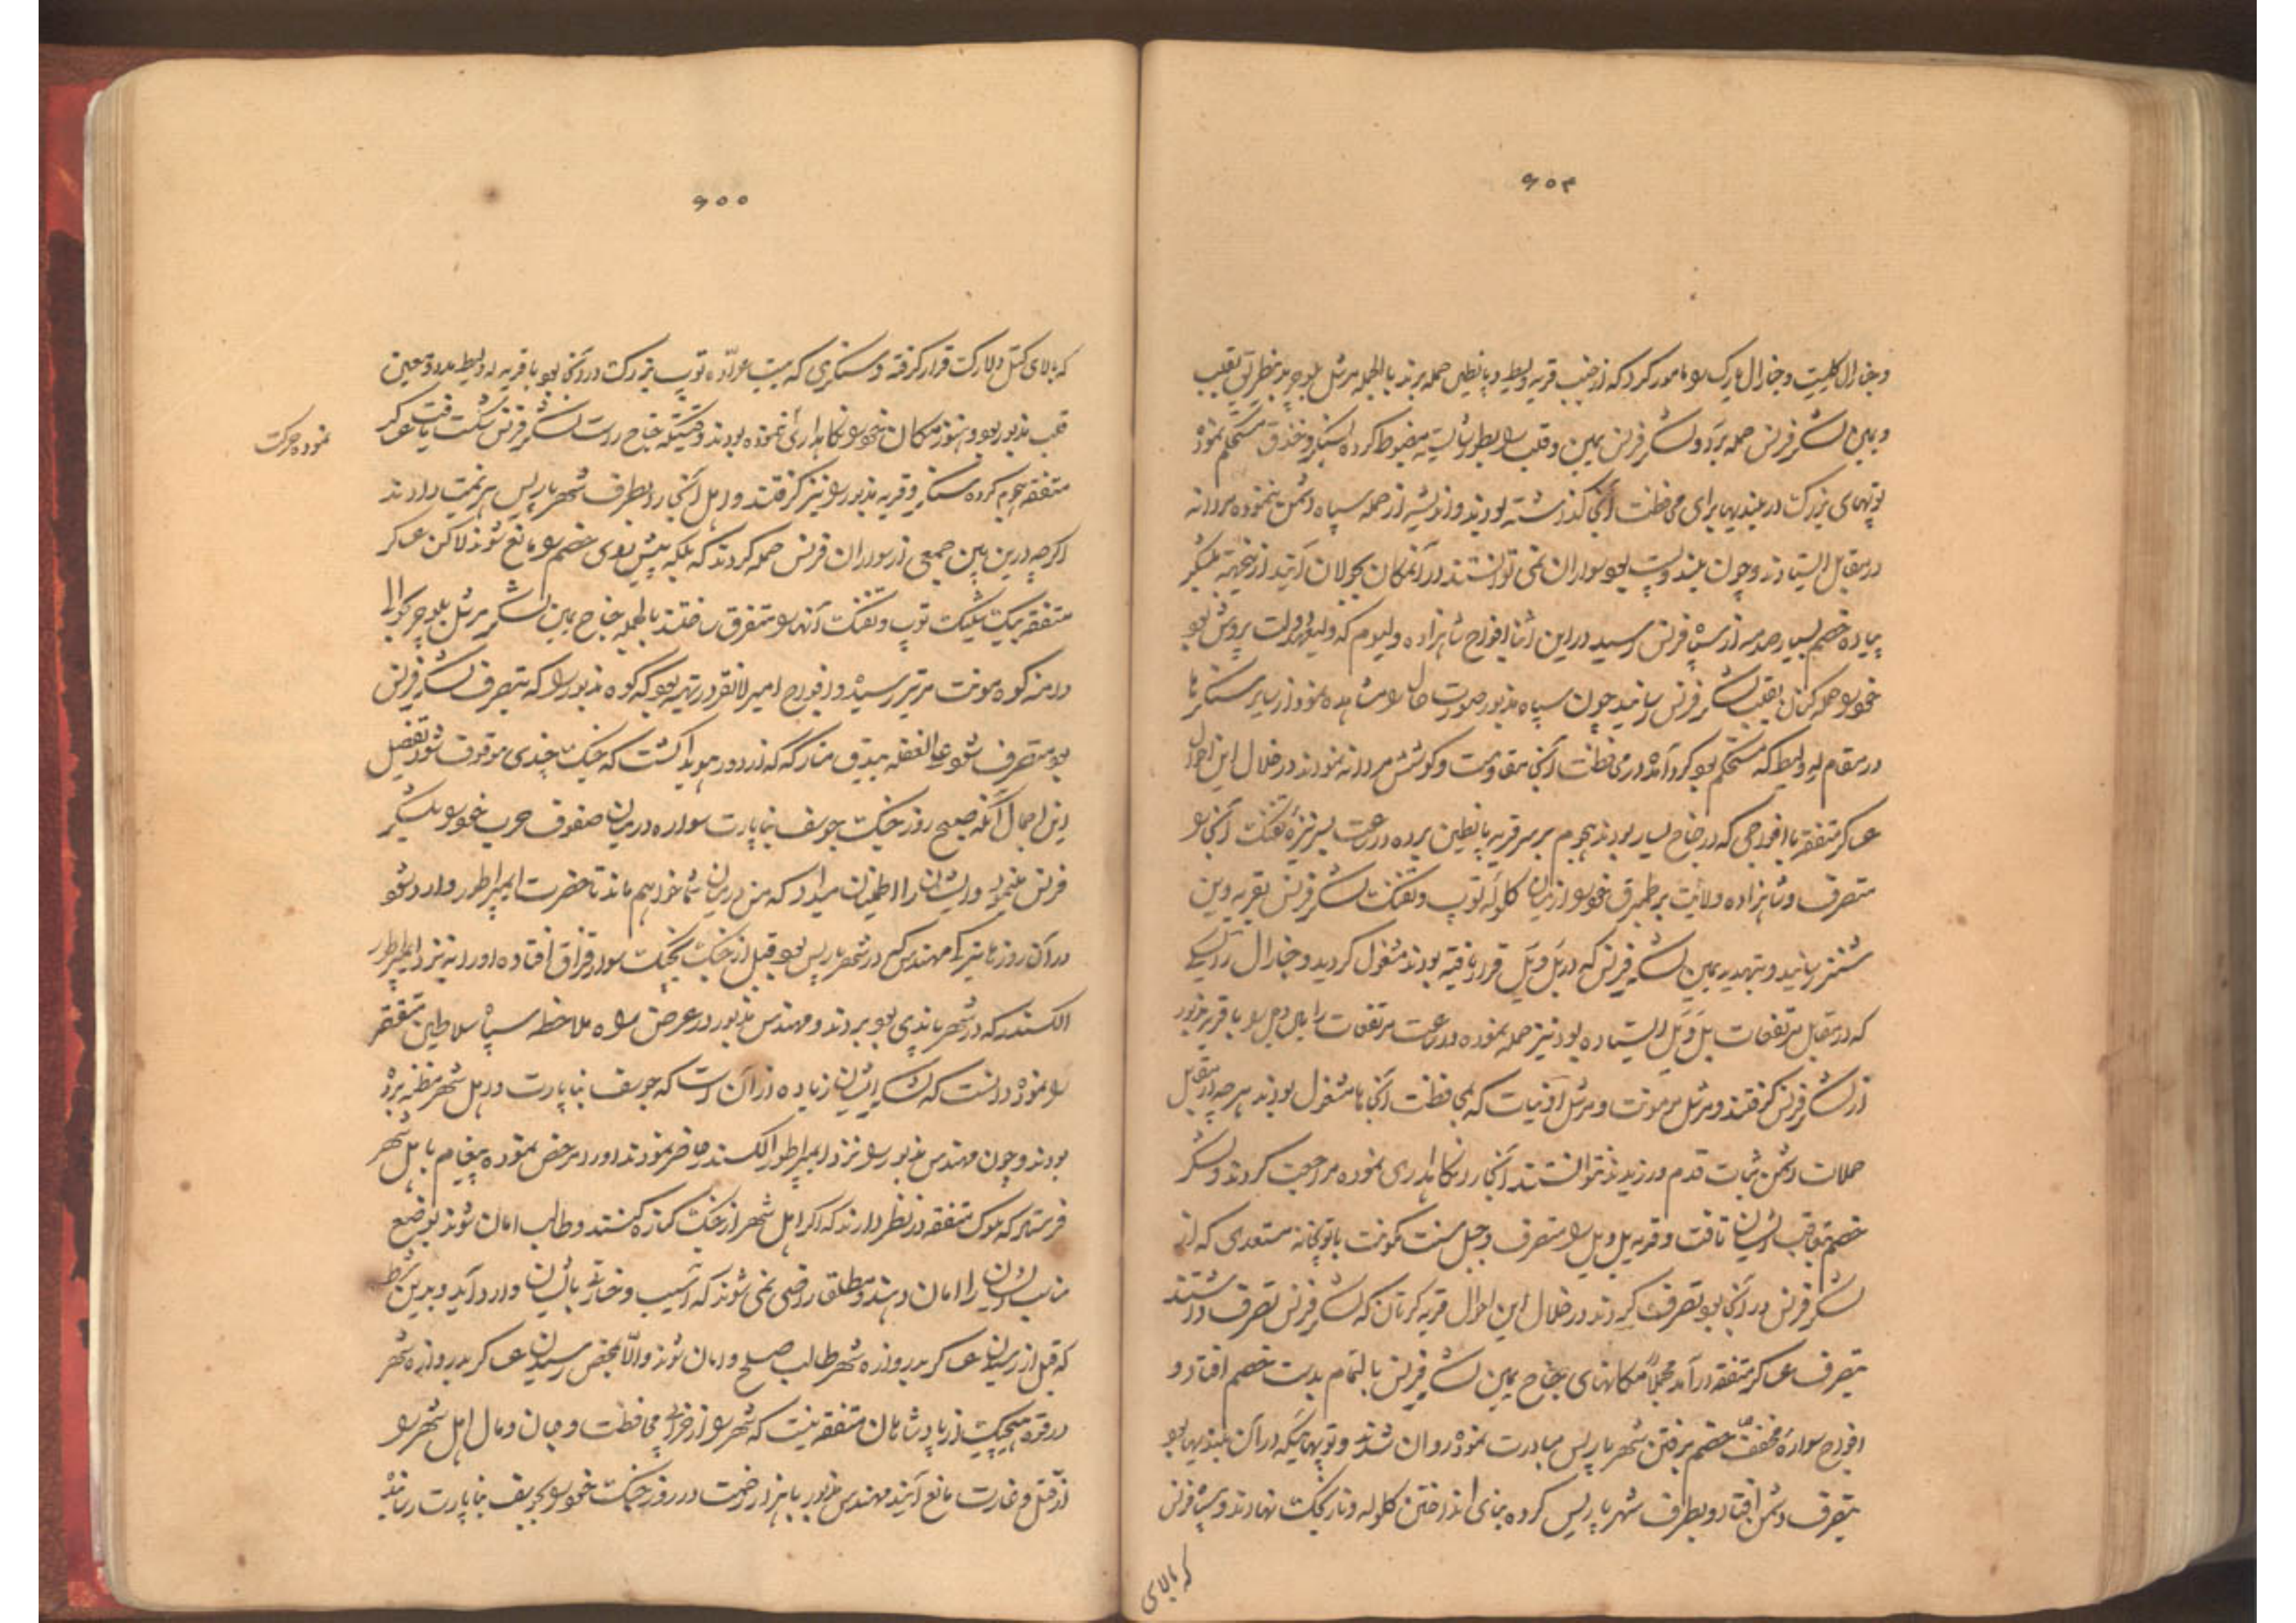 ۶۵۴
و جنرال کلیست و جنرال یارک را مامور کرد که از جنب قریه ویلیط و پانطین حمله برند بالجمله مرشل بلوچر بدینطریق بقلب
و یمین لشکر فرنس حمله برد و لشکر فرنس یمین و قلب را بطور شایسته مضبوط کرده سنگر و خندق مستحکم نموده
توپهای بزرگ در بلندیها برای محافظت آنجا گذاشته بودند و اندیشه از حمله سپاه دشمن ننموده مردانه
در مقابل ایستادند و چون بلند و پست بود سواران نمی توانستند در آنمکان بجولان آیند ازینجهة بلشکر
پیاده خصم بسیار صدمه از سپاه فرنس رسید در این اثنا افواج شاهزاده ولیوم که ولیعهد دولت پروش بود
خود را حمله کنان بقلب لشکر فرنس رسانید چون سپاه مذبور صورت حال را مشاهده نمود از سایر سنگرها
در مقام له ویلیط که مستحکم بود گرد آمده در محافظت آنجا مقاومت و کوشش مردانه نمودند در خلال این احوال
عساکر متفقه با افواجی که در جناح یسار بودند هجوم بر سر قریه پانطین برده در ساعت بسر نیزهٔ تفنگ آنجا را
متصرف و شاهزاده ولایت برطمبرق خود را از میان گلوله توپ و تفنگ لشکر فرنس بقریه وین
سنتز رسانید و بتهدید یمین لشکر فرنس که در بل ویل قرار یافته بودند مشغول گردید و جنرال رایسکی
که در مقابل مرتفعات بل ویل ایستاده بود نیز حمله نموده در ساعت مرتفعات را با قریه مذبور
از لشکر فرنس گرفتند و مرشل مرمونت و مرشل که بمحافظت آنجاها مشغول بودند هر چه در مقابل
حملات دشمن ثبات قدم ورزیدند نتوانستند آنجا را نگاهداری نموده مراجعت کردند و لشکر
خصم تعاقب ایشان تاخت و قریه بل ویل را متصرف و جبل سنت کمونت با توپخانه متعددی که از
لشکر فرنس در آنجا بود تصرف کردند در خلال این احوال قریه کرتان که لشکر فرنس تصرف داشتند
بتصرف عساکر متفقه در آمد مجملاً مکانهای جناح یمین لشکر فرنس بالتمام بدست خصم افتاد و
افواج سوارهٔ مخفف خصم بگرفتن شهر پاریس مبادرت نموده روان شدند و توپهائیکه در آن بلندیها بود
بتصرف دشمن افتاد و بطرف شهر پاریس کرده بنای انداختن گلوله و نارنجک نهادند و سپاه فرنس
که بالای
۶۵۵
که بالای کتل دلارکت قرار گرفته و سنگری که بیست عرّاده توپ بزرگ در آنجا بود با قریه له ویلیط مدد و معین
قلب مذبور بود و هنوز مکان خود را نگاهداری نموده بودند وقتیکه جناح راست لشکر فرنس شکست یافت عساکر
نموده حرکت
متفقه هجوم کرده سنگر و قریه مذبور را نیز گرفتند و اهل آنجا را بطرف شهر پاریس هزیمت دادند
اگرچه درین بین جمعی از سواران فرنس حمله کردند که بلکه پیش روی خصم را مانع شوند لاکن عساکر
متفقه بیک شلیک توپ و تفنگ آنها را متفرق ساختند بالجمله جناح یمین لشکر مرشل بلوچر بحوالی
دامنه کوه مونت مرتیر رسیده و افواج امیر لانقرون در تهیه بود که کوه مذبور را که بتصرف لشکر فرنس
بود متصرف شود علی الغفله بیدق متارکه که از دور هویدا گشت که جنگ چندی موقوف شود تفصیل
این اجمال آنکه صبح روز جنگ جوسف بناپارت سواره در میان صفوف حرب خود را بلشکر
فرنس مینمود و ایشان را اطمینان میداد که من در میان شما خواهم ماند تا حضرت ایمپراطور وارد شود
در آن روز شخص مهندس که در شهر پاریس بود قبل از جنگ بچنگ سوار قزاق افتاده او را به نزد ایمپراطور
الکسندر که در شهر باندی بود بردند و مهندس مذبور در عرض راه ملاحظه سپاه سلاطین متفقه
را نموده دانست که لشکر ایشان زیاده از آن است که جوسف بناپارت و اهل شهر مظنه برده
بودند و چون مهندس مذبور را نزد ایمپراطور الکسندر حاضر نمودند او را مرخص نموده پیغام باهل شهر
فرستاد که ملوک متفقه در نظر دارند که اگر اهل شهر از جنگ کناره کنند و طالب امان شوند بوضع
مناسب ایشان را امان دهند و مطلقا راضی نمی شوند که آسیب و خسارتی بایشان وارد آید و بدین شرط
که قبل از رسیدن عساکر بدروازه شهر طالب صلح و امان شوند والّا بمحض رسیدن عساکر بدروازه شهر
در قوه هیچیک از پادشاهان متفقه نیست که شهر را از خرابی محافظت و جان و مال اهل شهر را
از قتل و غارت مانع آیند مهندس مذبور بهزار زحمت در روز جنگ خود را بجوسف بناپارت رسانیده